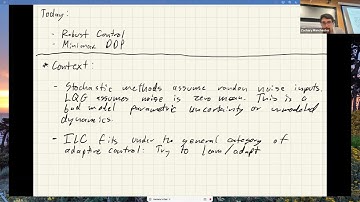 Today:
- Robust Control
- Minimax DDP
* Context:
- Stochastic methods assume random noise inputs.
LQG assumes noise is zero mean. This is a
bad model parametric uncertainty or unmodeled
dynamics.
- ILC fits under the general category of
adaptive control: Try to learn/adapt